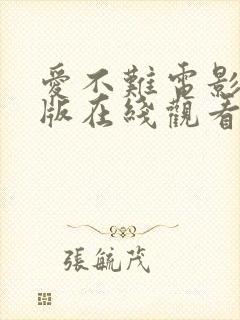 愛不難電影
版在綫觀看
張毓茂